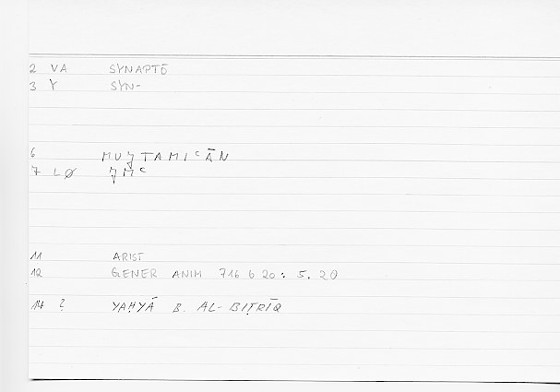 2 VA SYNAPTŌ
3 Y SYN-
6 MUǦTAMIʿĀN
7 LØ ǦMʿ
11 ARIST
12 GENER ANIM 716 b 20 : 5, 20
14 ? YAḤYĀ B. AL-BIṬRĪQ